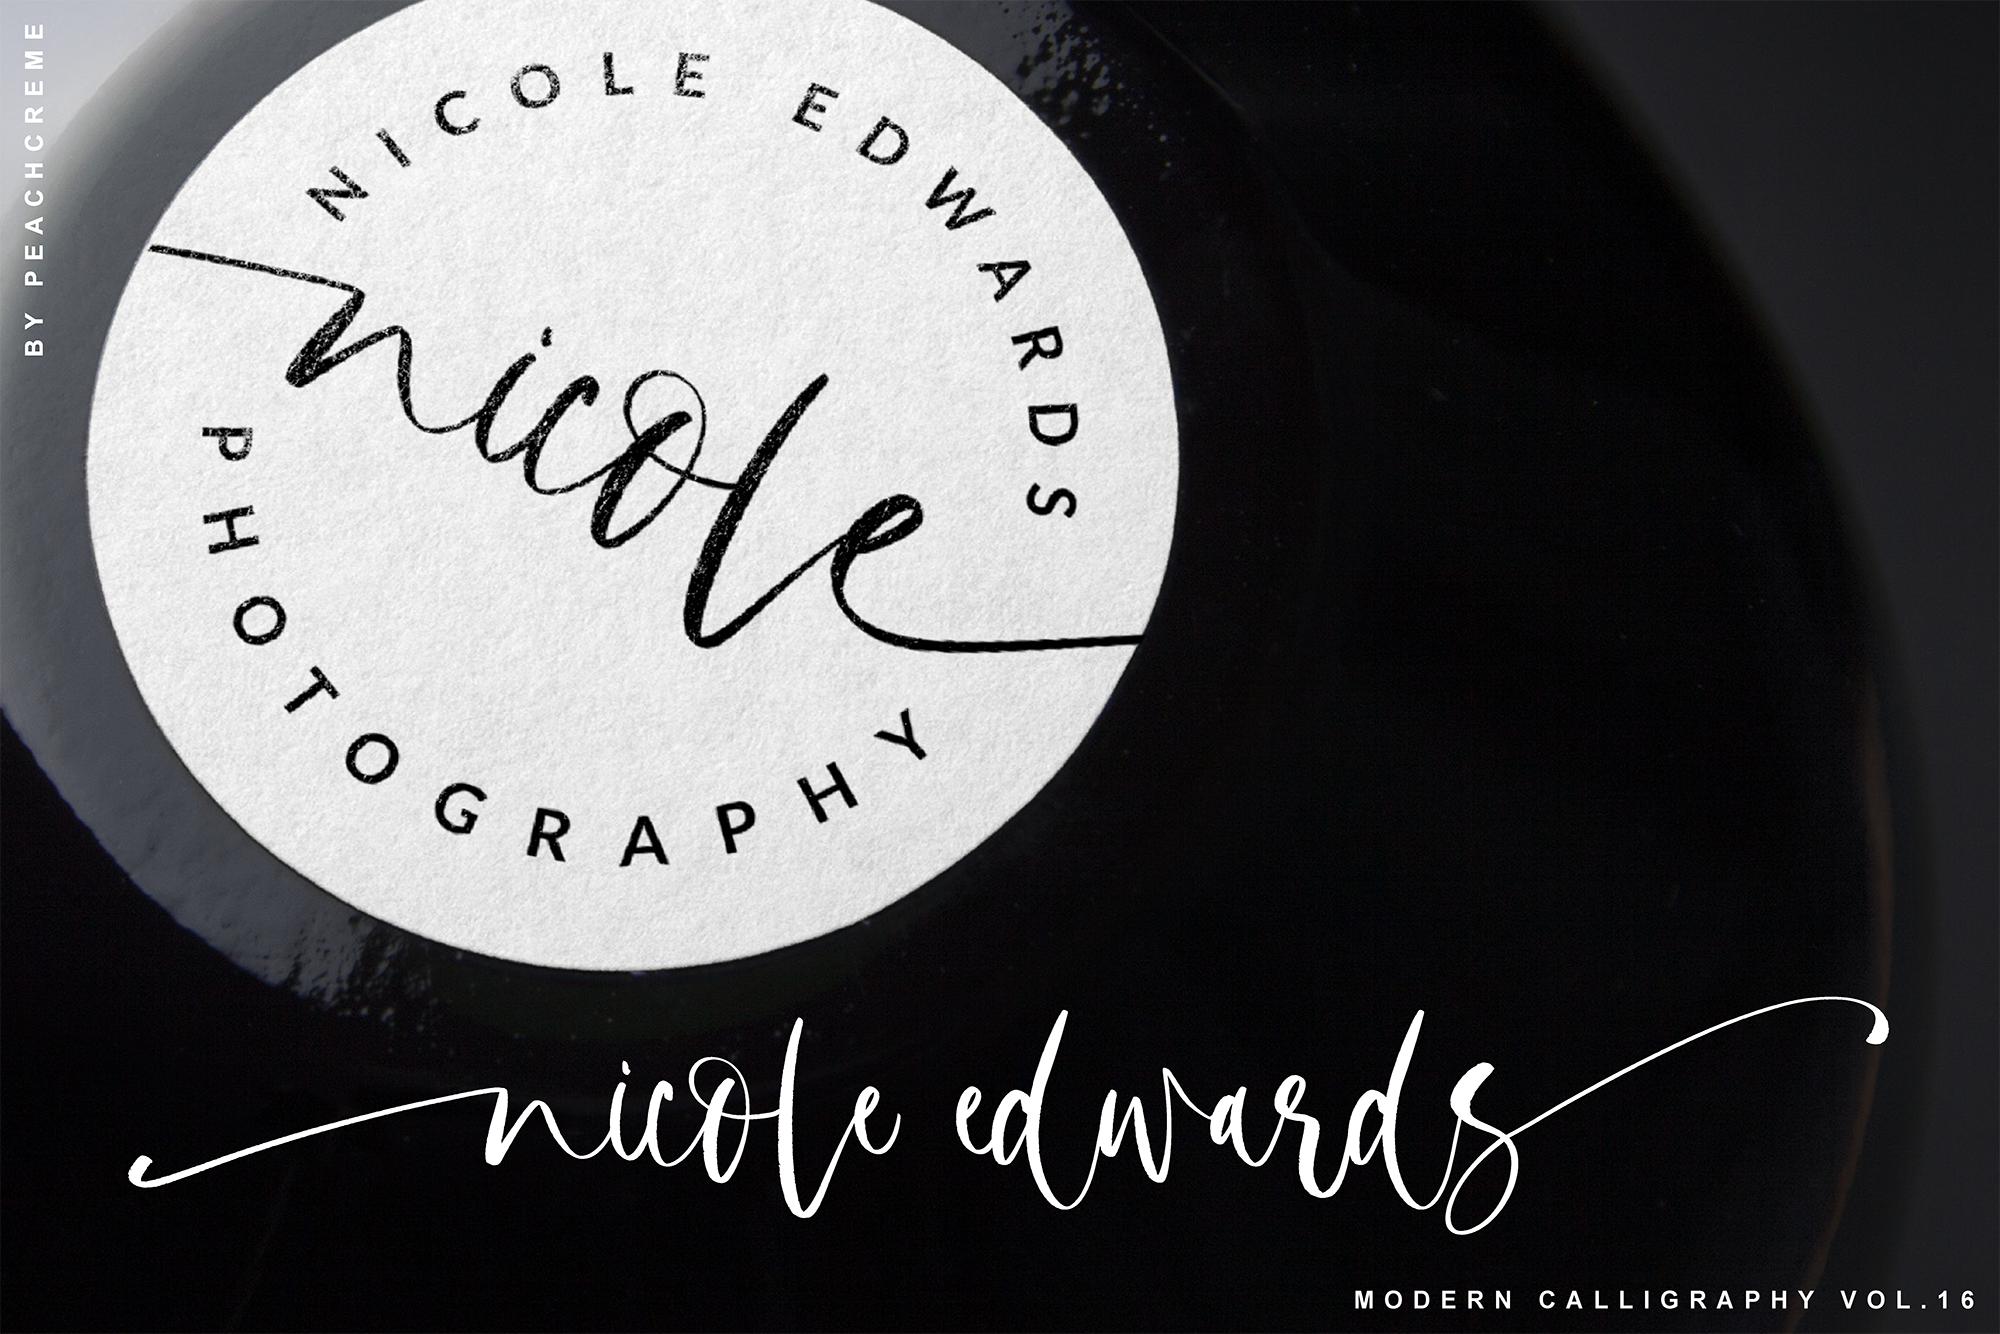 BY PEACHCREME
NICOLE EDWARDS
nicole
PHOTOGRAPHY
nicole edwards
MODERN CALLIGRAPHY VOL.16